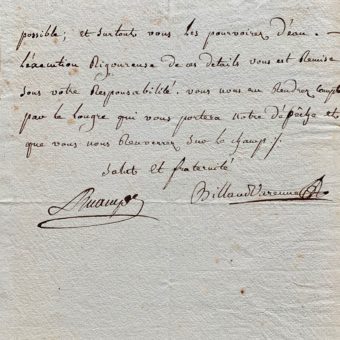 possible; et surtout vous les pourvoirez d'eau. —
L'éxecution Rigoureuse de ces details vous est Remise
sous votre Responsabilité. vous nous en Rendrez compte
par le lougre qui vous portera notre dépêche et
que vous nous Renverrez sur le champ /.
Salut et fraternité
Billaud Varenne